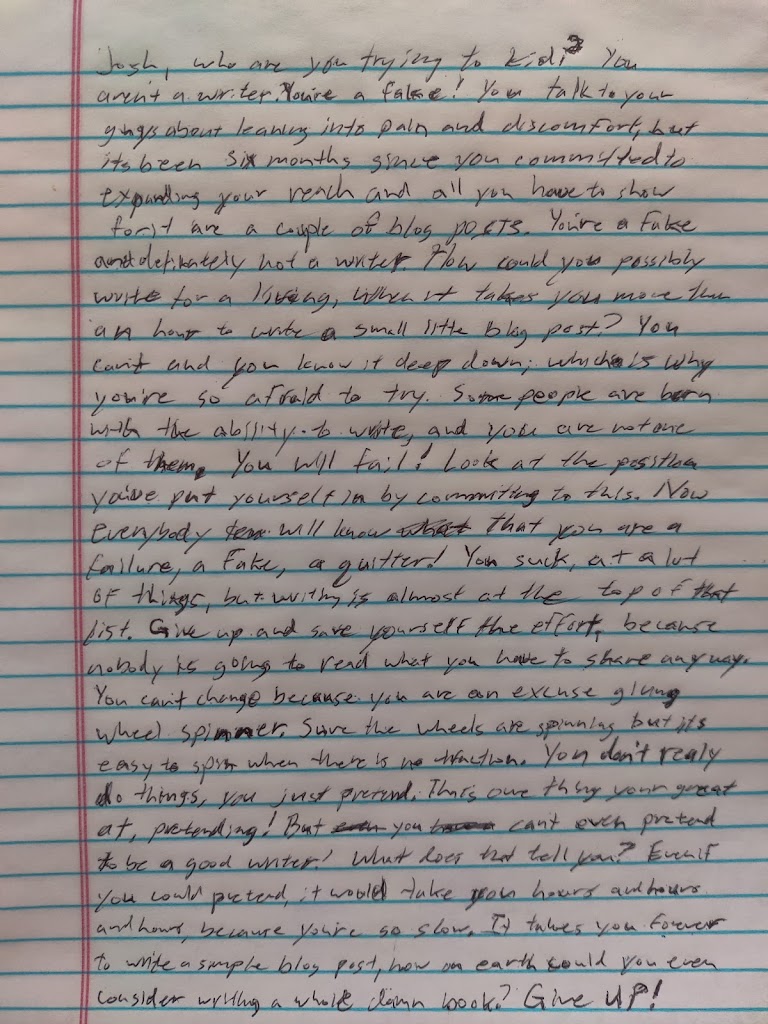 Josh, who are you trying to kid? You
aren't a writer. You're a fake! You talk to your
guys about leaning into pain and discomfort, but
its been six months since you committed to
expanding your reach and all you have to show
for it are a couple of blog posts. You're a fake
and definitely not a writer. How could you possibly
write for a living, when it takes you more than
an hour to write a small little blog post? You
can't and you know it deep down; which is why
you're so afraid to try. Some people are born
with the ability to write, and you are not one
of them. You will fail! Look at the position
you've put yourself in by committing to this. Now
everybody will know that you are a
failure, a fake, a quitter! You suck, at a lot
of things, but writing is almost at the top of that
list. Give up and save yourself the effort, because
nobody is going to read what you have to share anyway.
You can't change because you are an excuse giving
wheel spinner. Sure the wheels are spinning but its
easy to spin when there is no traction. You don't realy
do things, you just pretend. Thats one thing your great
at, pretending! But you can't even pretend
to be a good writer! What does that tell you? Even if
you could pretend, it would take you hours and hours
and hours, because you're so slow. It takes you forever
to write a simple blog post, how on earth could you even
consider writing a whole damn book? Give UP!